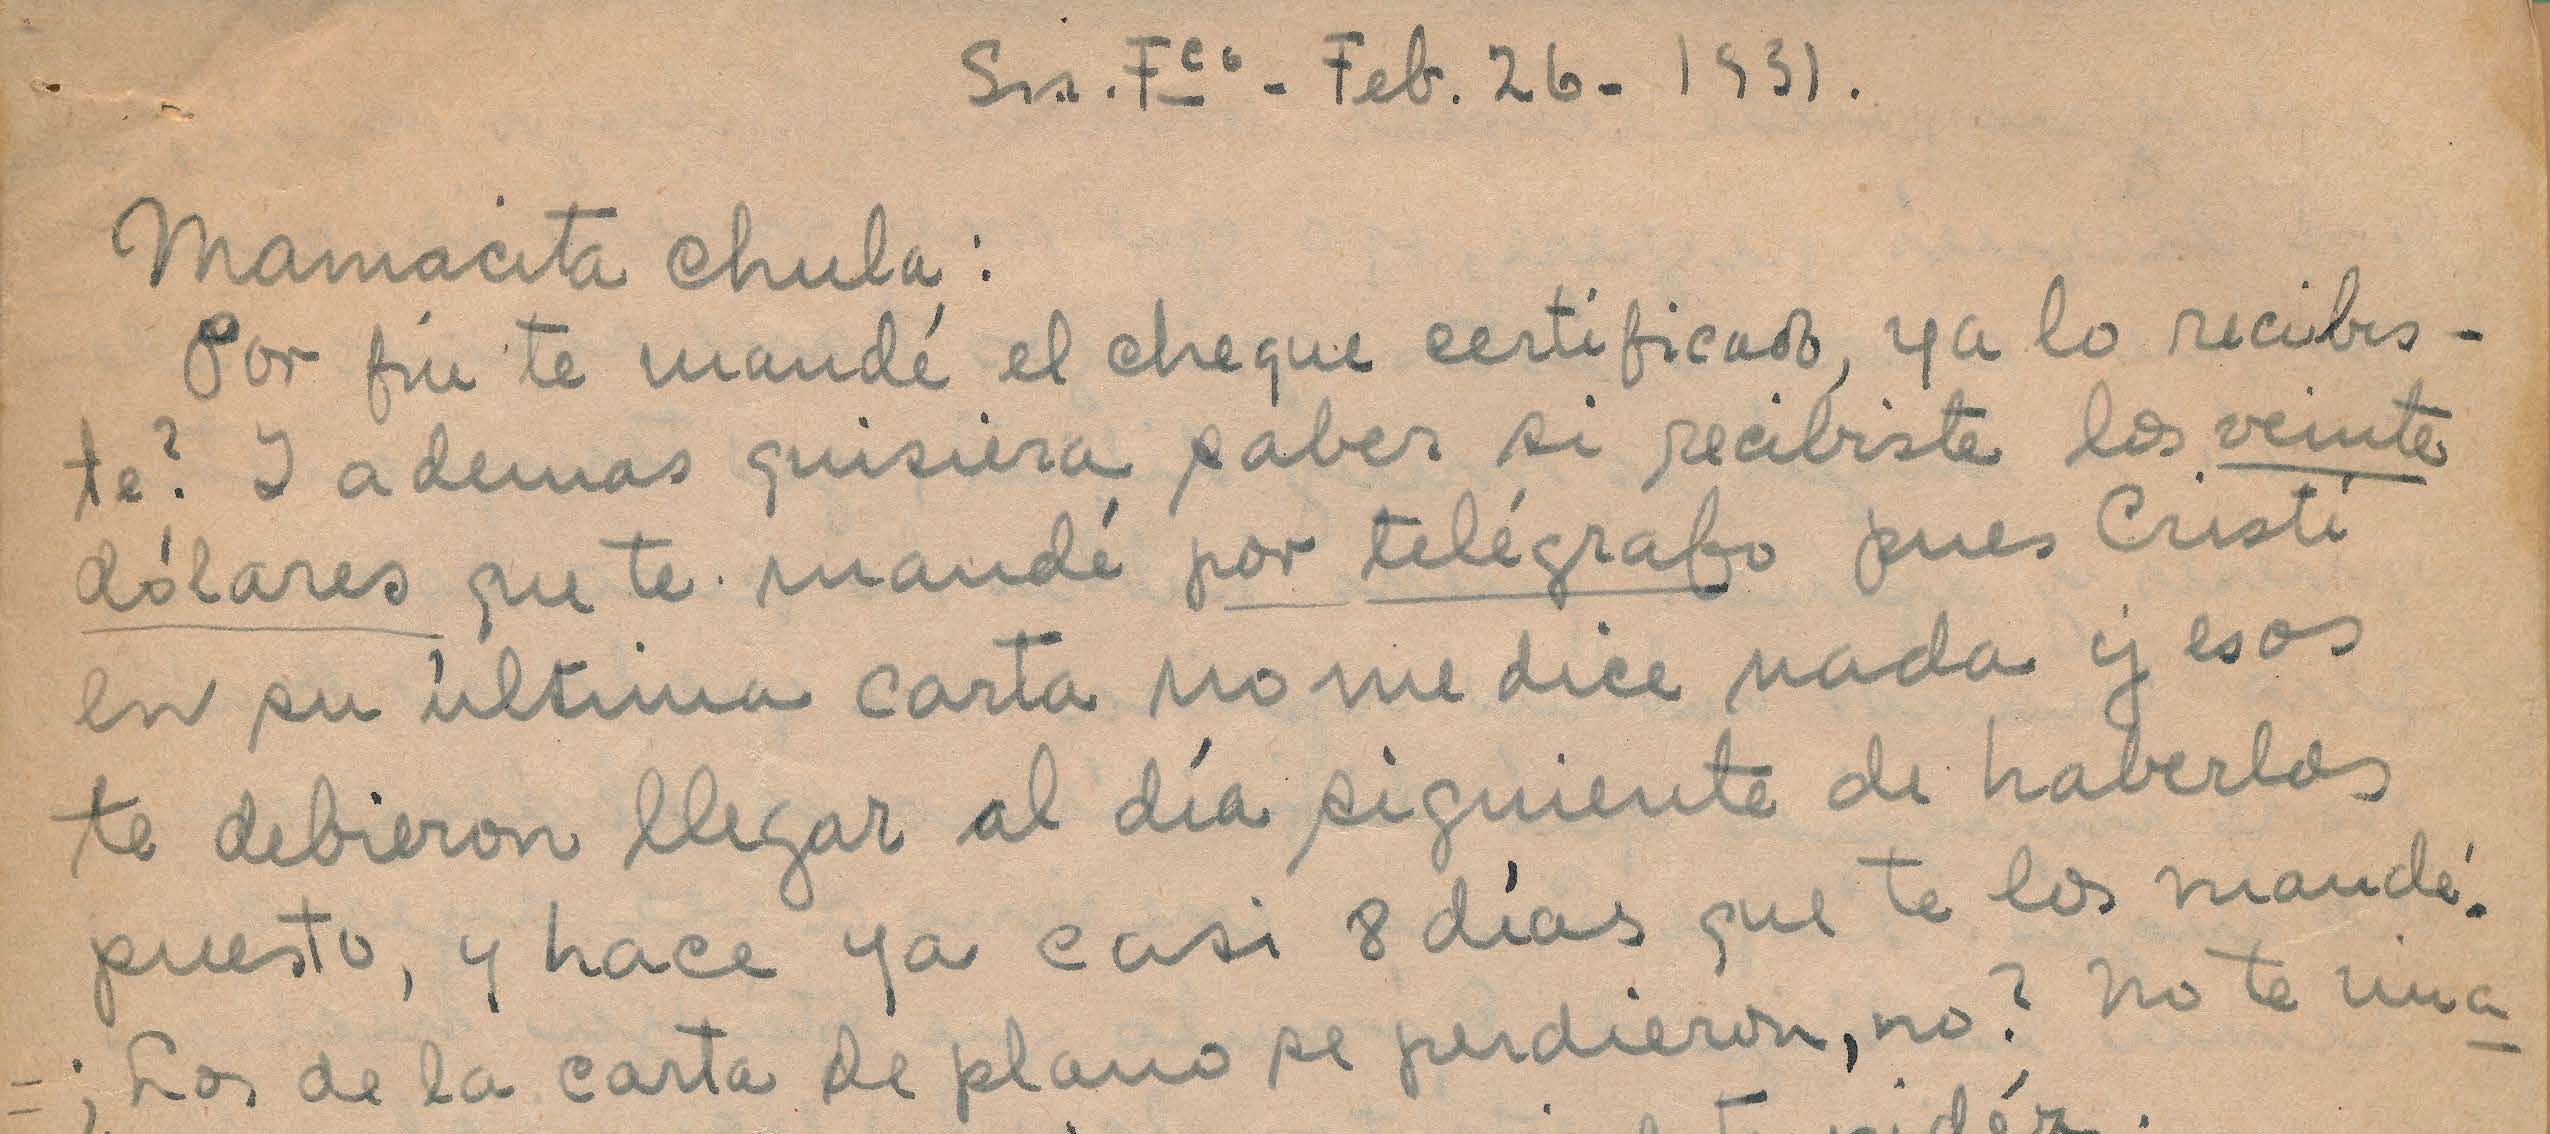 Sn. Fco - Feb. 26 - 1931.
Mamacita chula:
Por fin te mandé el cheque certificado, ya lo recibis-
te? I ademas quisiera saber si recibiste los veinte
dólares que te mandé por telégrafo pues Cristi
en su última carta no me dice nada y esos
te debieron llegar al día siguiente de haberlos
puesto, y hace ya casi 8 días que te los mandé.
¿Los de la carta de plano se perdieron, no? No te